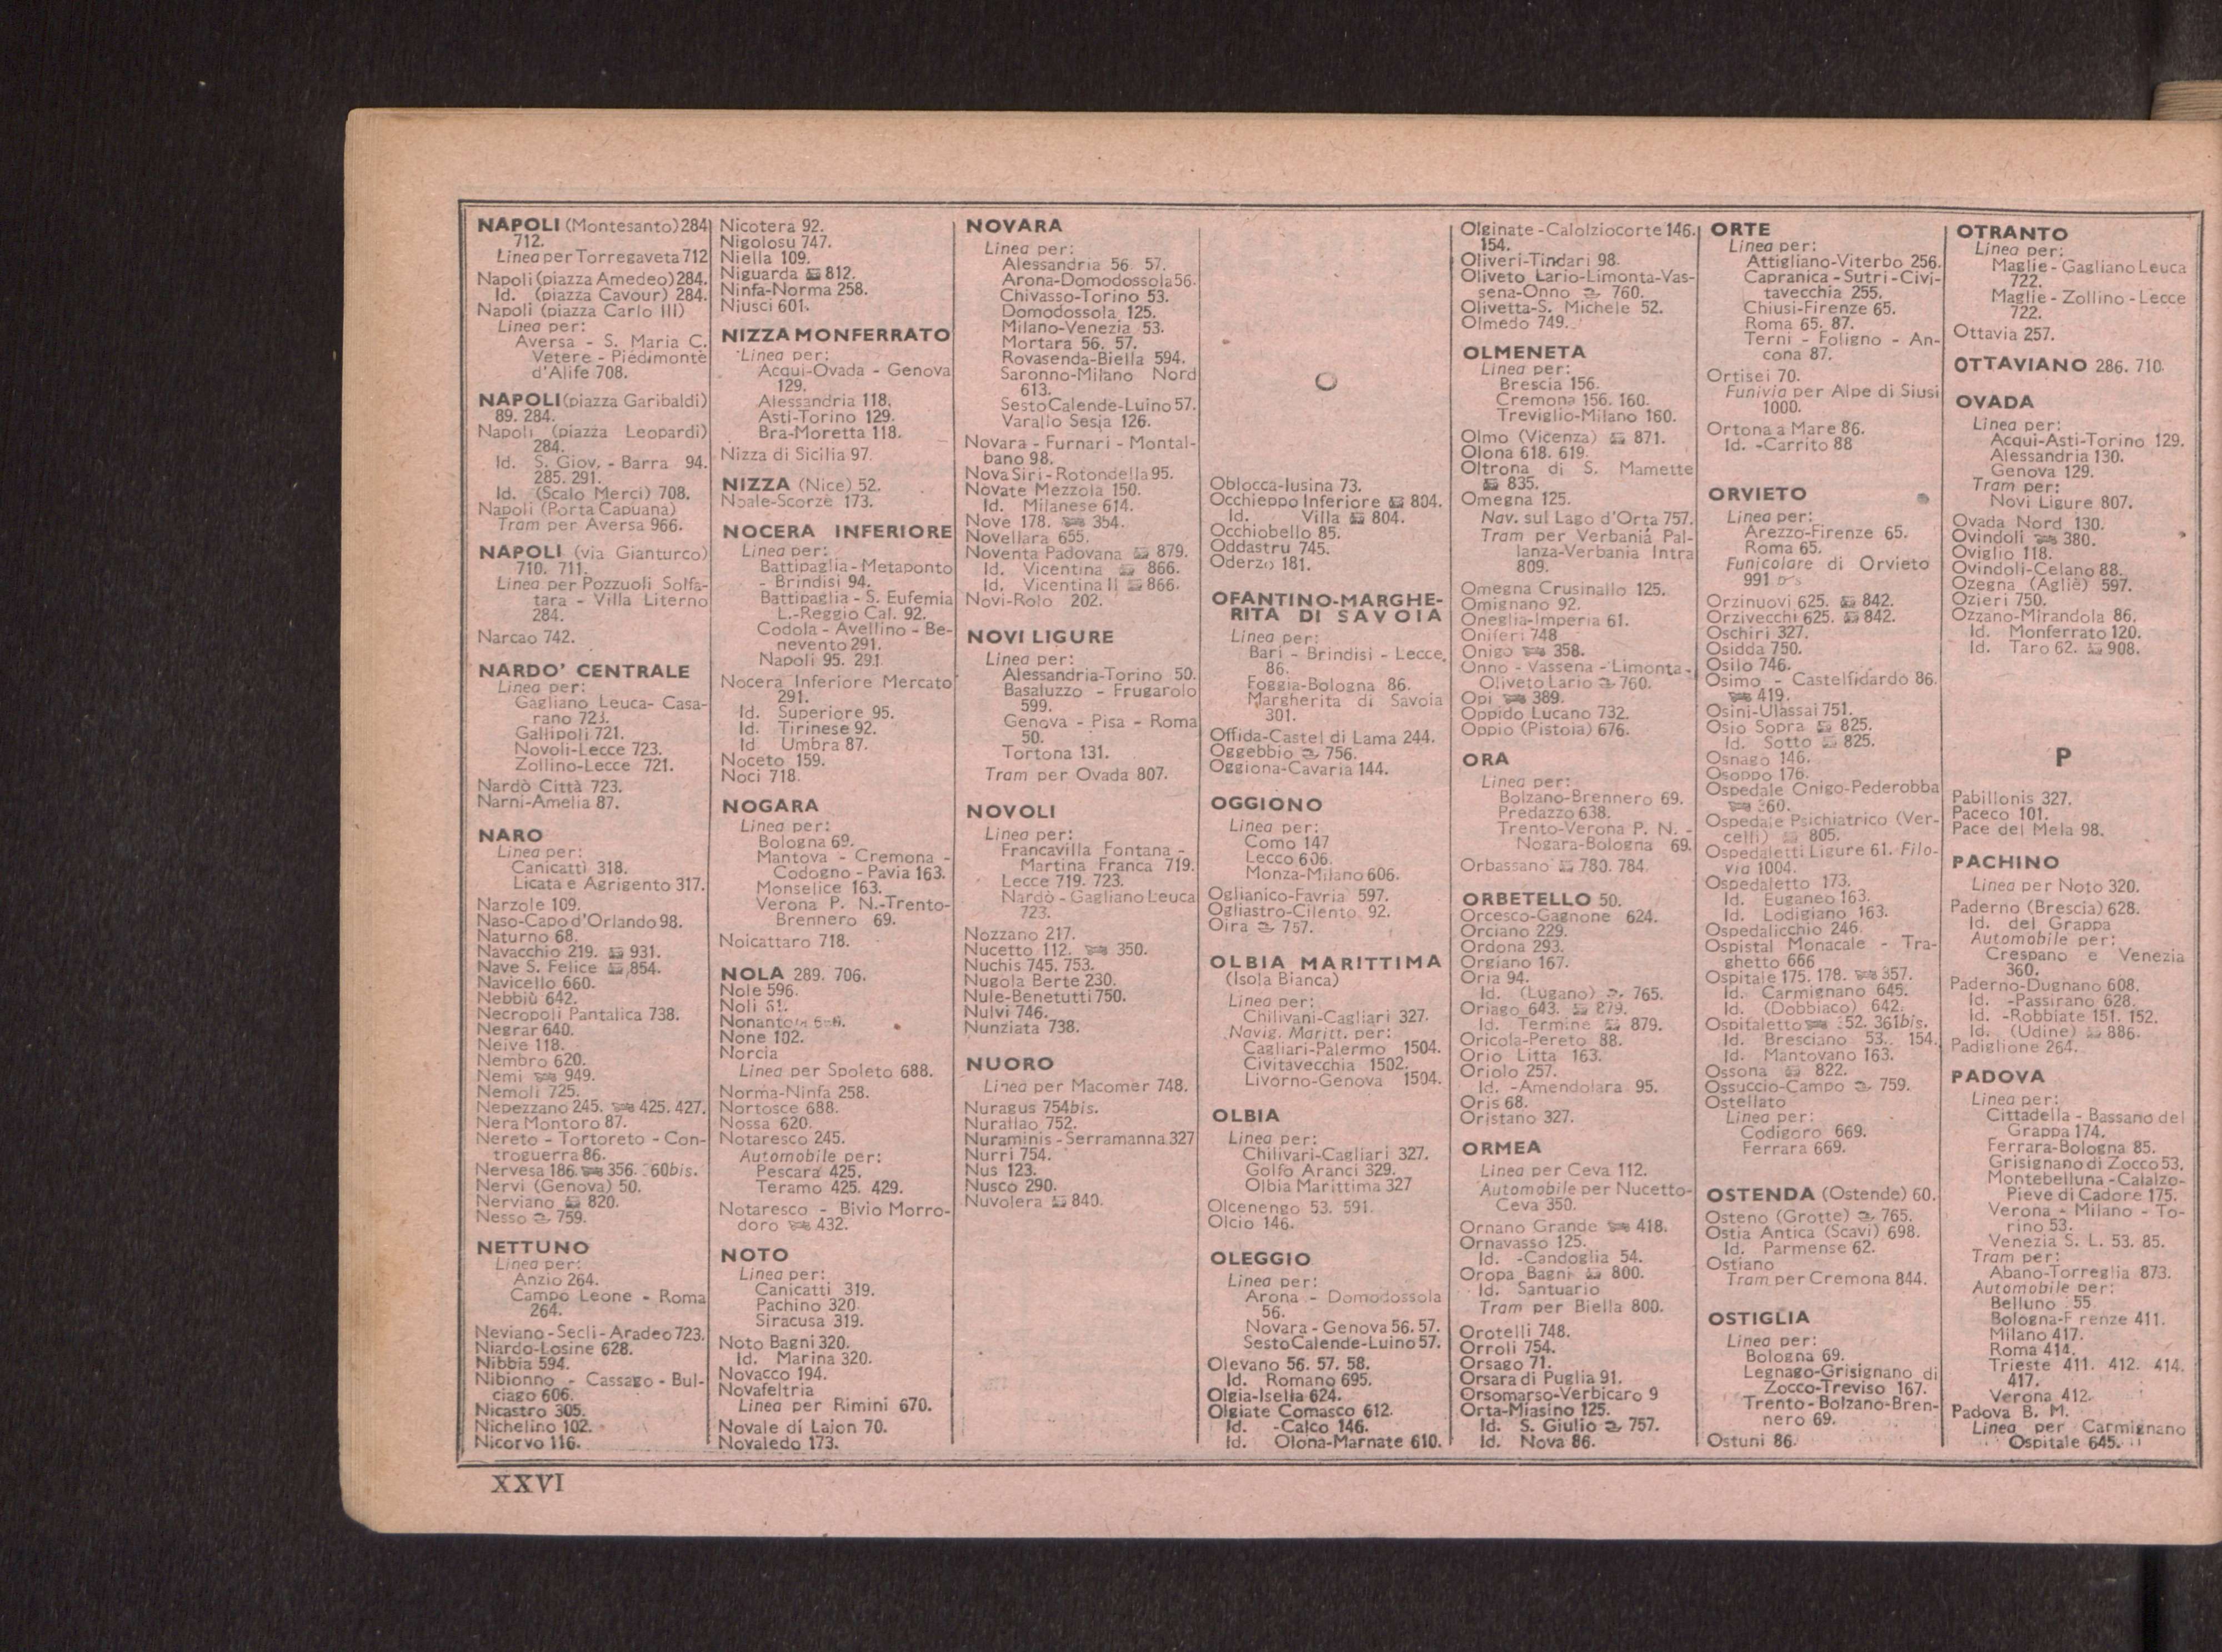 NAPOLI (Montesanto) 284
712.
Linea per Torregaveta 712
Napoli (piazza Amedeo) 284.
Id. (piazza Cavour) 284.
Napoli (piazza Carlo III)
Linea per:
Aversa - S. Maria C.
Vetere - Piedimonte
d'Alife 708.
NAPOLI (piazza Garibaldi)
89. 284.
Napoli (piazza Leopardi)
284.
Id. S. Giov. - Barra 94.
285. 291.
Id. (Scalo Merci) 708.
Napoli (Porta Capuana)
Tram per Aversa 966.
NAPOLI (via Gianturco)
710. 711.
Linea per Pozzuoli Solfa-
tara - Villa Literno
284.
Narcao 742.
NARDO' CENTRALE
Linea per:
Gagliano Leuca- Casa-
rano 723.
Gallipoli 721.
Novoli-Lecce 723.
Zollino-Lecce 721.
Nardò Città 723.
Narni-Amelia 87.
NARO
Linea per:
Canicattì 318.
Licata e Agrigento 317.
Narzole 109.
Naso-Capo d'Orlando 98.
Naturno 68.
Navacchio 219. 931.
Nave S. Felice 854.
Navicello 660.
Nebbiù 642.
Necropoli Pantalica 738.
Negrar 640.
Neive 118.
Nembro 620.
Nemi 949.
Nemoli 725.
Nepezzano 245. 425. 427.
Nera Montoro 87.
Nereto - Tortoreto - Con-
troguerra 86.
Nervesa 186. 356. 60bis.
Nervi (Genova) 50.
Nerviano 820.
Nesso 759.
NETTUNO
Linea per:
Anzio 264.
Campo Leone - Roma
264.
Neviano-Secli-Aradeo 723.
Niardo-Losine 628.
Nibbia 594.
Nibionno - Cassago - Bul-
ciago 606.
Nicastro 305.
Nichelino 102.
Nicorvo 116.
Nicotera 92.
Nigolosu 747.
Niella 109.
Niguarda 812.
Ninfa-Norma 258.
Niusci 601.
NIZZA MONFERRATO
Linea per:
Acqui-Ovada - Genova
129.
Alessandria 118.
Asti-Torino 129.
Bra-Moretta 118.
Nizza di Sicilia 97.
NIZZA (Nice) 52.
Noale-Scorzè 173.
NOCERA INFERIORE
Linea per:
Battipaglia-Metaponto
- Brindisi 94.
Battipaglia-S. Eufemia
L.-Reggio Cal. 92.
Codola - Avellino - Be-
nevento 291.
Napoli 95. 291.
Nocera Inferiore Mercato
291.
Id. Superiore 95.
Id. Tirinese 92.
Id. Umbra 87.
Noceto 159.
Noci 718.
NOGARA
Linea per:
Bologna 69.
Mantova - Cremona -
Codogno - Pavia 163.
Monselice 163.
Verona P. N.-Trento-
Brennero 69.
Noicattaro 718.
NOLA 289. 706.
Nole 596.
Noli 61.
Nonantola
None 102.
Norcia
Linea per Spoleto 688.
Norma-Ninfa 258.
Nortosce 688.
Nossa 620.
Notaresco 245.
Automobile per:
Pescara 425.
Teramo 425. 429.
Notaresco - Bivio Morro-
doro 432.
NOTO
Linea per:
Canicatti 319.
Pachino 320.
Siracusa 319.
Noto Bagni 320.
Id. Marina 320.
Novacco 194.
Novafeltria
Linea per Rimini 670.
Novale di Laion 70.
Novaledo 173.
NOVARA
Linea per:
Alessandria 56. 57.
Arona-Domodossola 56.
Chivasso-Torino 53.
Domodossola 125.
Milano-Venezia 53.
Mortara 56. 57.
Rovasenda-Biella 594.
Saronno-Milano Nord
613.
Sesto Calende-Luino 57.
Varallo Sesia 126.
Novara - Furnari - Montal-
bano 98.
Nova Siri - Rotondella 95.
Novate Mezzola 150.
Id. Milanese 614.
Nove 178. 354.
Novellara 655.
Noventa Padovana 879.
Id. Vicentina 866.
Id. Vicentina II 866.
Novi-Rolo 202.
NOVI LIGURE
Linea per:
Alessandria-Torino 50.
Basaluzzo - Frugarolo
599.
Genova - Pisa - Roma
50.
Tortona 131.
Tram per Ovada 807.
NOVOLI
Linea per:
Francavilla Fontana -
Martina Franca 719.
Lecce 719. 723.
Nardò - Gagliano Leuca
723.
Nozzano 217.
Nucetto 112. 350.
Nuchis 745. 753.
Nugola Berte 230.
Nule-Benetutti 750.
Nulvi 746.
Nunziata 738.
NUORO
Linea per Macomer 748.
Nuragus 754bis.
Nurallao 752.
Nuraminis-Serramanna 327
Nurri 754.
Nus 123.
Nusco 290.
Nuvolera 840.
O
Oblocca-Iusina 73.
Occhieppo Inferiore 804.
Id. Villa 804.
Occhiobello 85.
Oddastru 745.
Oderzo 181.
OFANTINO-MARGHE-
RITA DI SAVOIA
Linea per:
Bari - Brindisi - Lecce
86.
Foggia-Bologna 86.
Margherita di Savoia
301.
Offida-Castel di Lama 244.
Oggebbio 756.
Oggiona-Cavaria 144.
OGGIONO
Linea per:
Como 147
Lecco 606.
Monza-Milano 606.
Oglianico-Favria 597.
Ogliastro-Cilento 92.
Oira 757.
OLBIA MARITTIMA
(Isola Bianca)
Linea per:
Chilivani-Cagliari 327.
Navig. Maritt. per:
Cagliari-Palermo 1504.
Civitavecchia 1502.
Livorno-Genova 1504.
OLBIA
Linea per:
Chilivari-Cagliari 327.
Golfo Aranci 329.
Olbia Marittima 327
Olcenengo 53. 591.
Olcio 146.
OLEGGIO
Linea per:
Arona - Domodossola
56.
Novara - Genova 56. 57.
Sesto Calende-Luino 57.
Olevano 56. 57. 58.
Id. Romano 695.
Olgia-Isella 624.
Olgiate Comasco 612.
Id. -Calco 146.
Id. Olona-Marnate 610.
Olginate-Calolziocorte 146.
154.
Oliveri-Tindari 98.
Oliveto Lario-Limonta-Vas-
sena-Onno 760.
Olivetta-S. Michele 52.
Olmedo 749.
OLMENETA
Linea per:
Brescia 156.
Cremona 156. 160.
Treviglio-Milano 160.
Olmo (Vicenza) 871.
Olona 618. 619.
Oltrona di S. Mamette
835.
Omegna 125.
Nav. sul Lago d'Orta 757.
Tram per Verbania Pal-
lanza-Verbania Intra
809.
Omegna Crusinallo 125.
Omignano 92.
Oneglia-Imperia 61.
Oniferi 748
Onigo 358.
Onno - Vassena - Limonta-
Oliveto Lario 760.
Opi 389.
Oppido Lucano 732.
Oppio (Pistoia) 676.
ORA
Linea per:
Bolzano-Brennero 69.
Predazzo 638.
Trento-Verona P. N. -
Nogara-Bologna 69.
Orbassano 780. 784.
ORBETELLO 50.
Orcesco-Gagnone 624.
Orciano 229.
Ordona 293.
Orgiano 167.
Oria 94.
Id. (Lugano) 765.
Oriago 643. 879.
Id. Termine 879.
Oricola-Pereto 88.
Orio Litta 163.
Oriolo 257.
Id. -Amendolara 95.
Oris 68.
Oristano 327.
ORMEA
Linea per Ceva 112.
Automobile per Nucetto-
Ceva 350.
Ornano Grande 418.
Ornavasso 125.
Id. -Candoglia 54.
Oropa Bagni 800.
Id. Santuario
Tram per Biella 800.
Orotelli 748.
Orroli 754.
Orsago 71.
Orsara di Puglia 91.
Orsomarso-Verbicaro 9
Orta-Miasino 125.
Id. S. Giulio 757.
Id. Nova 86.
ORTE
Linea per:
Attigliano-Viterbo 256.
Capranica - Sutri - Civi-
tavecchia 255.
Chiusi-Firenze 65.
Roma 65. 87.
Terni - Foligno - An-
cona 87.
Ortisei 70.
Funivia per Alpe di Siusi
1000.
Ortona a Mare 86.
Id. -Carrito 88
ORVIETO
Linea per:
Arezzo-Firenze 65.
Roma 65.
Funicolare di Orvieto
991
Orzinuovi 625. 842.
Orzivecchi 625. 842.
Oschiri 327.
Osidda 750.
Osilo 746.
Osimo - Castelfidardo 86.
419.
Osini-Ulassai 751.
Osio Sopra 825.
Id. Sotto 825.
Osnago 146.
Osoppo 176.
Ospedale Onigo-Pederobba
360.
Ospedale Psichiatrico (Ver-
celli) 805.
Ospedaletti Ligure 61. Filo-
via 1004.
Ospedaletto 173.
Id. Euganeo 163.
Id. Lodigiano 163.
Ospedalicchio 246.
Ospistal Monacale - Tra-
ghetto 666
Ospitale 175. 178. 357.
Id. Carmignano 645.
Id. (Dobbiaco) 642.
Ospitaletto 52. 361bis.
Id. Bresciano 53. 154.
Id. Mantovano 163.
Ossona 822.
Ossuccio-Campo 759.
Ostellato
Linea per:
Codigoro 669.
Ferrara 669.
OSTENDA (Ostende) 60.
Osteno (Grotte) 765.
Ostia Antica (Scavi) 698.
Id. Parmense 62.
Ostiano
Tram per Cremona 844.
OSTIGLIA
Linea per:
Bologna 69.
Legnago-Grisignano di
Zocco-Treviso 167.
Trento-Bolzano-Bren-
nero 69.
Ostuni 86.
OTRANTO
Linea per:
Maglie - Gagliano Leuca
722.
Maglie - Zollino - Lecce
722.
Ottavia 257.
OTTAVIANO 286. 710.
OVADA
Linea per:
Acqui-Asti-Torino 129.
Alessandria 130.
Genova 129.
Tram per:
Novi Ligure 807.
Ovada Nord 130.
Ovindoli 380.
Oviglio 118.
Ovindoli-Celano 88.
Ozegna (Agliè) 597.
Ozieri 750.
Ozzano-Mirandola 86.
Id. Monferrato 120.
Id. Taro 62. 908.
P
Pabillonis 327.
Paceco 101.
Pace del Mela 98.
PACHINO
Linea per Noto 320.
Paderno (Brescia) 628.
Id. del Grappa
Automobile per:
Crespano e Venezia
360.
Paderno-Dugnano 608.
Id. -Passirano 628.
Id. -Robbiate 151. 152.
Id. (Udine) 886.
Padiglione 264.
PADOVA
Linea per:
Cittadella - Bassano del
Grappa 174.
Ferrara-Bologna 85.
Grisignano di Zocco 53.
Montebelluna-Calalzo-
Pieve di Cadore 175.
Verona - Milano - To-
rino 53.
Venezia S. L. 53. 85.
Tram per:
Abano-Torreglia 873.
Automobile per:
Belluno 55
Bologna-F renze 411.
Milano 417.
Roma 414.
Trieste 411. 412. 414.
417.
Verona 412.
Padova B. M.
Linea per Carmignano
Ospitale 645.
XXVI